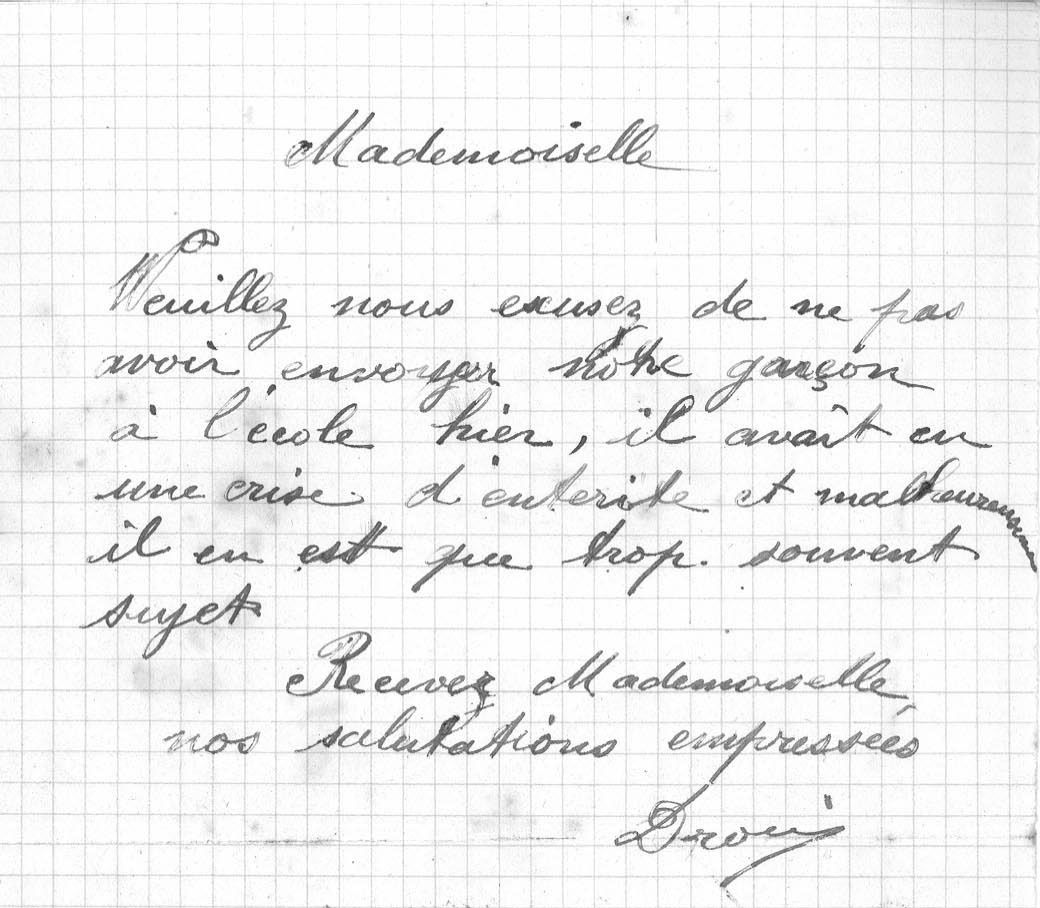 Mademoiselle
Veuillez nous exusez de ne pas
avoir envoyer notre garçon
à l'école hier, il avait eu
une crise d'enterite et malheureusement
il en est que trop souvent
sujet
Recevez Mademoiselle,
nos salutations empressées